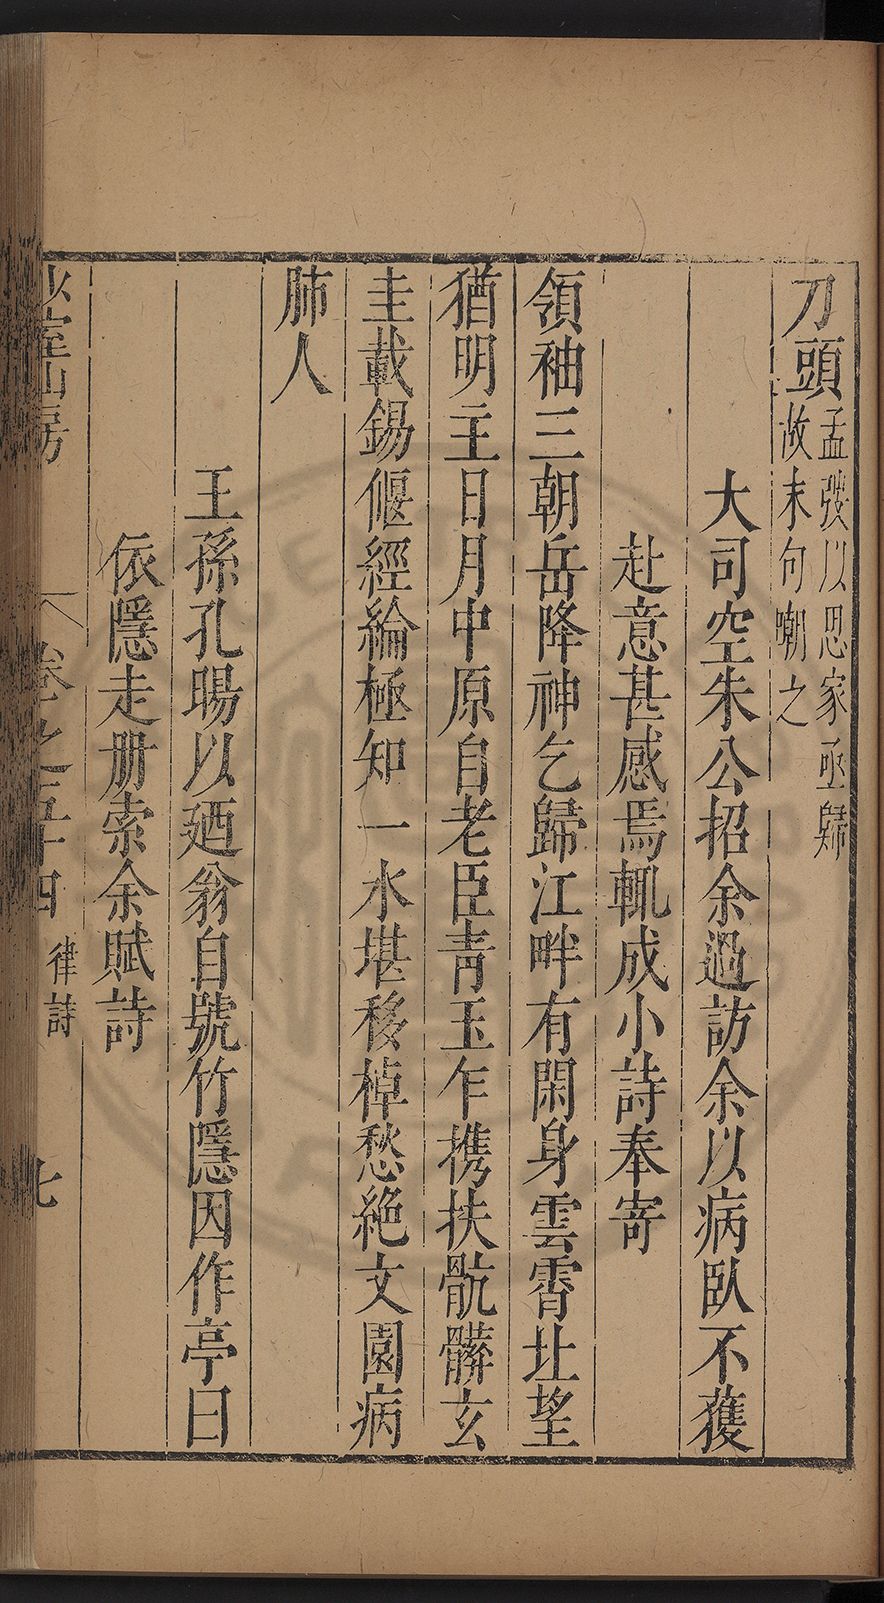 刀頭孟弢以思家亟歸
故末句嘲之
大司空朱公招余過訪余以病臥不獲
赴意甚感焉輒成小詩奉寄
領袖三朝岳降神乞歸江畔有閑身雲霄北望
猶明主日月中原自老臣青玉乍携扶骯髒玄
圭載錫偃經綸極知一水堪移棹愁絕文園病
肺人
王孫孔暘以廼翁自號竹隱因作亭曰
依隱走册索余賦詩
少室山房
卷之五十四
律詩
七